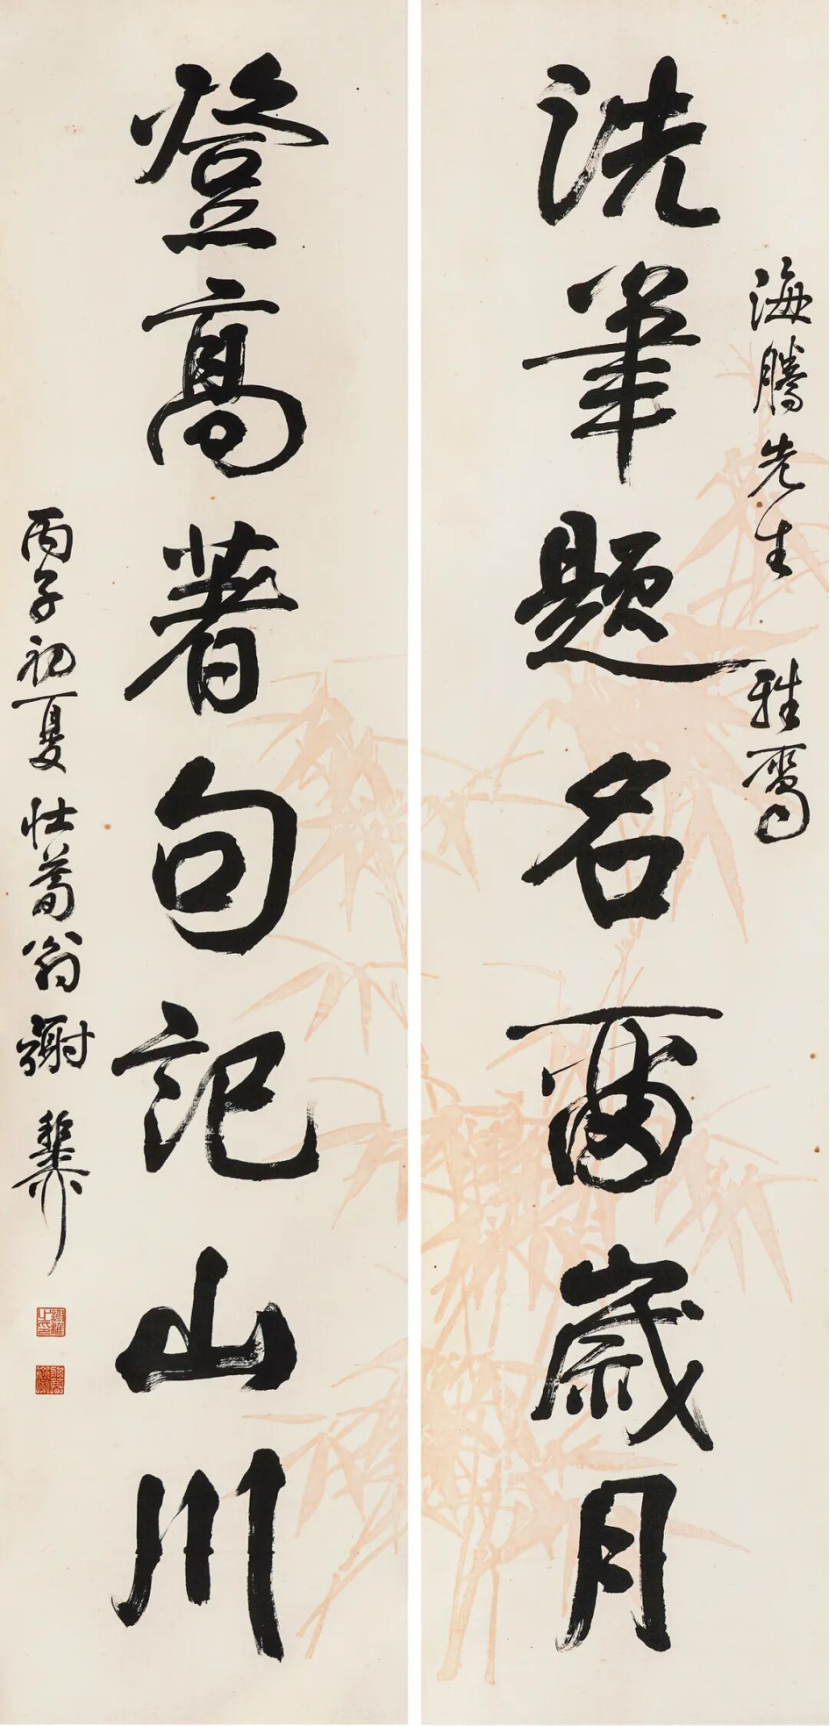 洗筆題名畱歲月
海騰先生 雅屬
登高著句記山川
丙子初夏壯暮翁謝稚柳